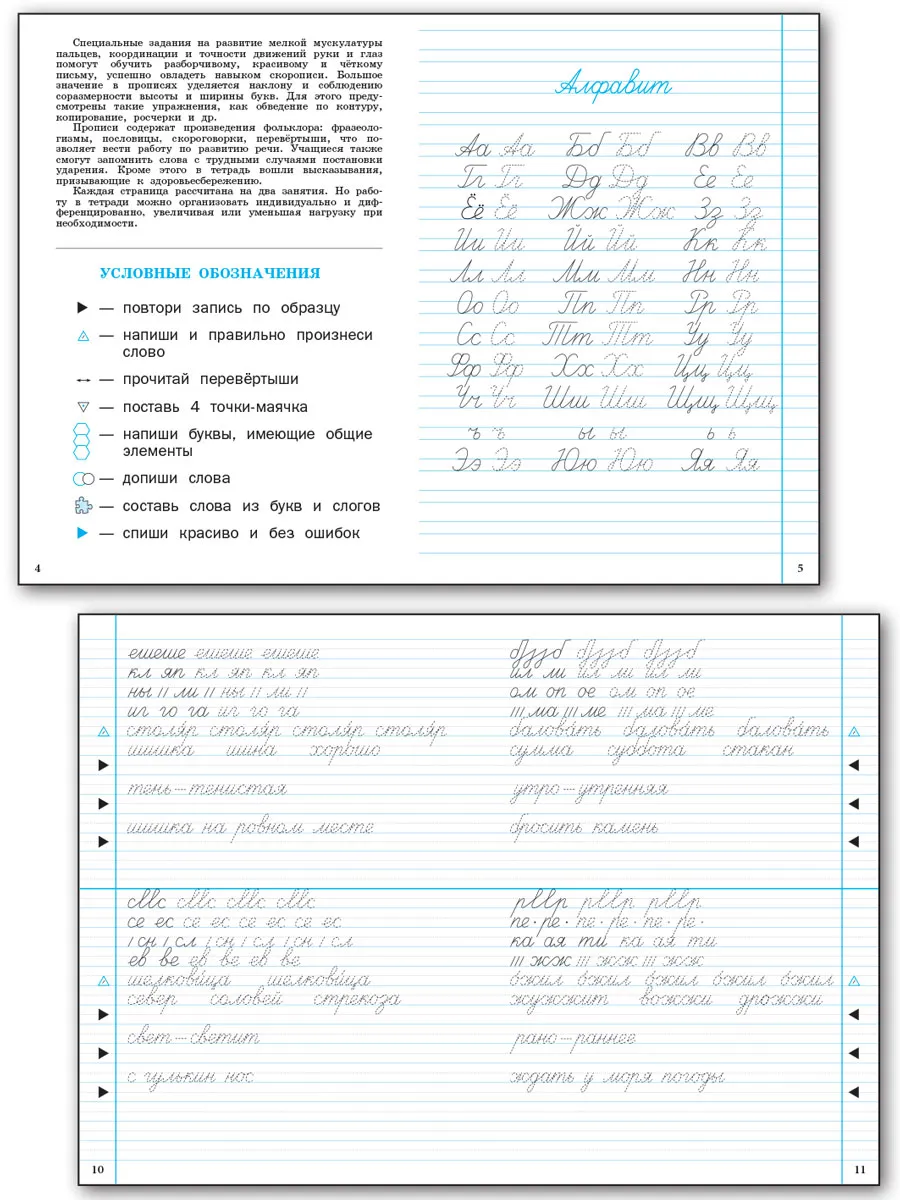 Специальные задания на развитие мелкой мускулатуры
пальцев, координации и точности движений руки и глаз
помогут обучить разборчивому, красивому и чёткому
письму, успешно овладеть навыком скорописи. Большое
значение в прописях уделяется наклону и соблюдению
соразмерности высоты и ширины букв. Для этого преду-
смотрены такие упражнения, как обведение по контуру,
копирование, росчерки и др.
Прописи содержат произведения фольклора: фразеоло-
гизмы, пословицы, скороговорки, перевёртыши, что по-
зволяет вести работу по развитию речи. Учащиеся также
смогут запомнить слова с трудными случаями постановки
ударения. Кроме этого в тетрадь вошли высказывания,
призывающие к здоровьесбережению.
Каждая страница рассчитана на два занятия. Но рабо-
ту в тетради можно организовать индивидуально и диф-
ференцированно, увеличивая или уменьшая нагрузку при
необходимости.
УСЛОВНЫЕ ОБОЗНАЧЕНИЯ
— повтори запись по образцу
— напиши и правильно произнеси
слово
— прочитай перевёртыши
— поставь 4 точки-маячка
— напиши буквы, имеющие общие
элементы
— допиши слова
— составь слова из букв и слогов
— спиши красиво и без ошибок
4
Алфавит
Аа Аа Бб Бб Вв Вв
Гг Гг Дд Дд Ее Ее
Ёё Ёё Жж Жж Зз Зз
Ии Ии Йй Йй Кк Кк
Лл Лл Мм Мм Нн Нн
Оо Оо Пп Пп Рр Рр
Сс Сс Тт Тт Уу Уу
Фф Фф Хх Хх Цц Цц
Чч Чч Шш Шш Щщ Щщ
ъ ъ ы ы ь ь
Ээ Ээ Юю Юю Яя Яя
5
ешеше ешеше ешеше
кл яп кл яп кл яп
ны // ли // ны // ли //
иг го га иг го га
столя́р столя́р столя́р столя́р
шишка шина хорошо
тень – тенистая
шишка на ровном месте
ссс ссс ссс ссс
се ес се ес се ес се ес
/ сн / сл / сн / сл / сн / сл
ев ве ев ве ев ве
шелкови́ца шелкови́ца
север соловей стрекоза
свет – светит
с гулькин нос
10
ил ли ил ли ил ли
ом оп ое ом оп ое
/// ма /// ме /// ма /// ме
балова́ть балова́ть балова́ть
сумма суббота стакан
утро – утренняя
бросить камень
пе · ре · пе · ре · пе · ре ·
ка ая ти ка ая ти
/// жж /// жж /// жж
о́жил о́жил о́жил о́жил о́жил
жужжит вожжи дрожжи
рано – раннее
ждать у моря погоды
11